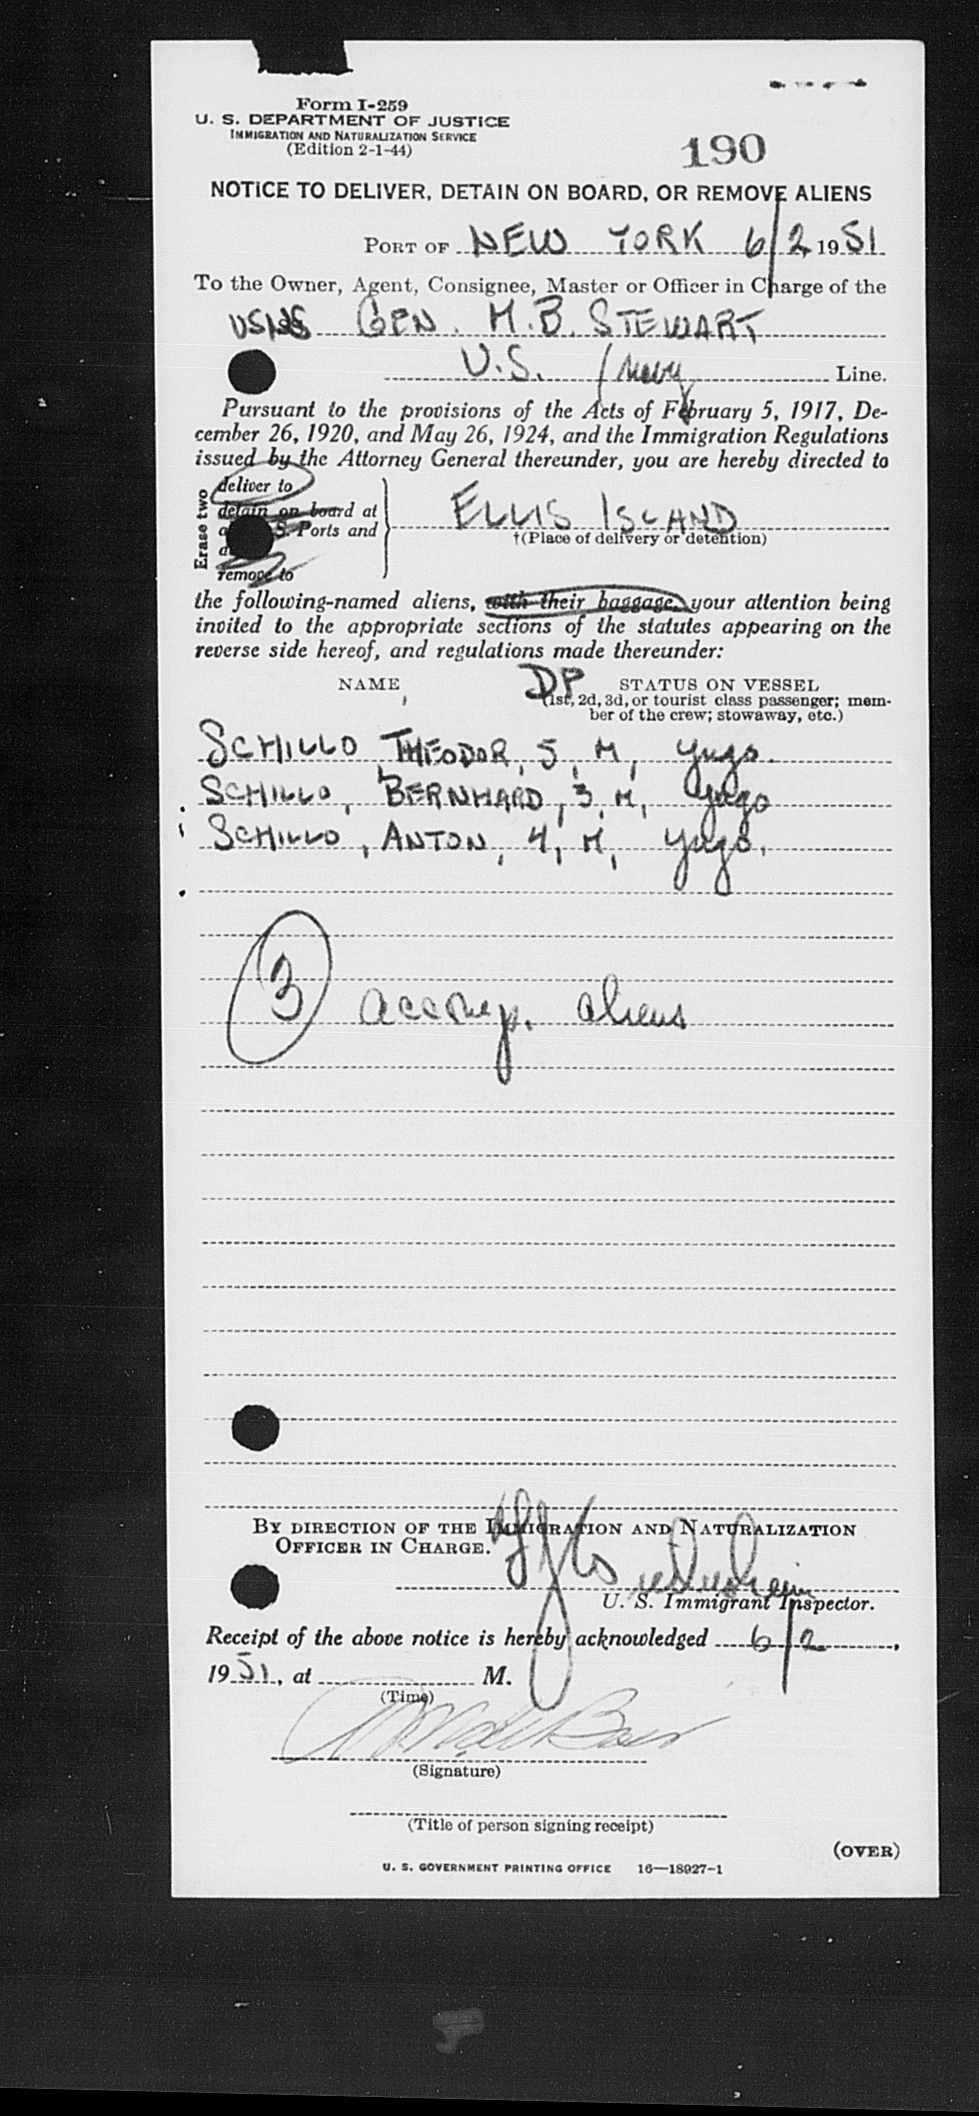 Form I-259
U. S. DEPARTMENT OF JUSTICE
IMMIGRATION AND NATURALIZATION SERVICE
(Edition 2-1-44)
190
NOTICE TO DELIVER, DETAIN ON BOARD, OR REMOVE ALIENS
PORT OF NEW YORK 6/2 1951
To the Owner, Agent, Consignee, Master or Officer in Charge of the
USNS GEN. M.B. STEWART
U.S. Navy Line.
Pursuant to the provisions of the Acts of February 5, 1917, De-
cember 26, 1920, and May 26, 1924, and the Immigration Regulations
issued by the Attorney General thereunder, you are hereby directed to
Erase two
deliver to
detain on board at
S. Ports and
remove to
ELLIS ISLAND
†(Place of delivery or detention)
the following-named aliens, with their baggage, your attention being
invited to the appropriate sections of the statutes appearing on the
reverse side hereof, and regulations made thereunder:
NAME DP STATUS ON VESSEL
(1st, 2d, 3d, or tourist class passenger; mem-
ber of the crew; stowaway, etc.)
SCHILLO, THEODOR, 5, M, Yugo.
SCHILLO, BERNHARD, 3, M, Yugo
SCHILLO, ANTON, 4, M, Yugo.
3 accomp. aliens
BY DIRECTION OF THE IMMIGRATION AND NATURALIZATION
OFFICER IN CHARGE.
U. S. Immigrant Inspector.
Receipt of the above notice is hereby acknowledged 6/2,
1951, at M.
(Time)
(Signature)
(Title of person signing receipt)
(OVER)
U. S. GOVERNMENT PRINTING OFFICE 16—18927-1